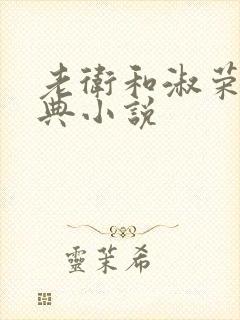 老衛和淑荣
典小説
靈茉希